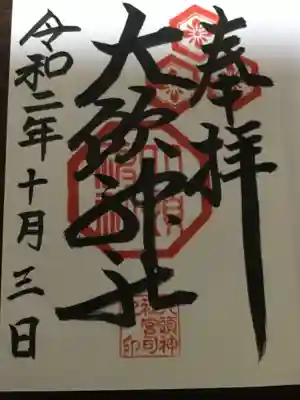 奉拝
大頭神社
令和二年十月三日
大頭神
社宮司